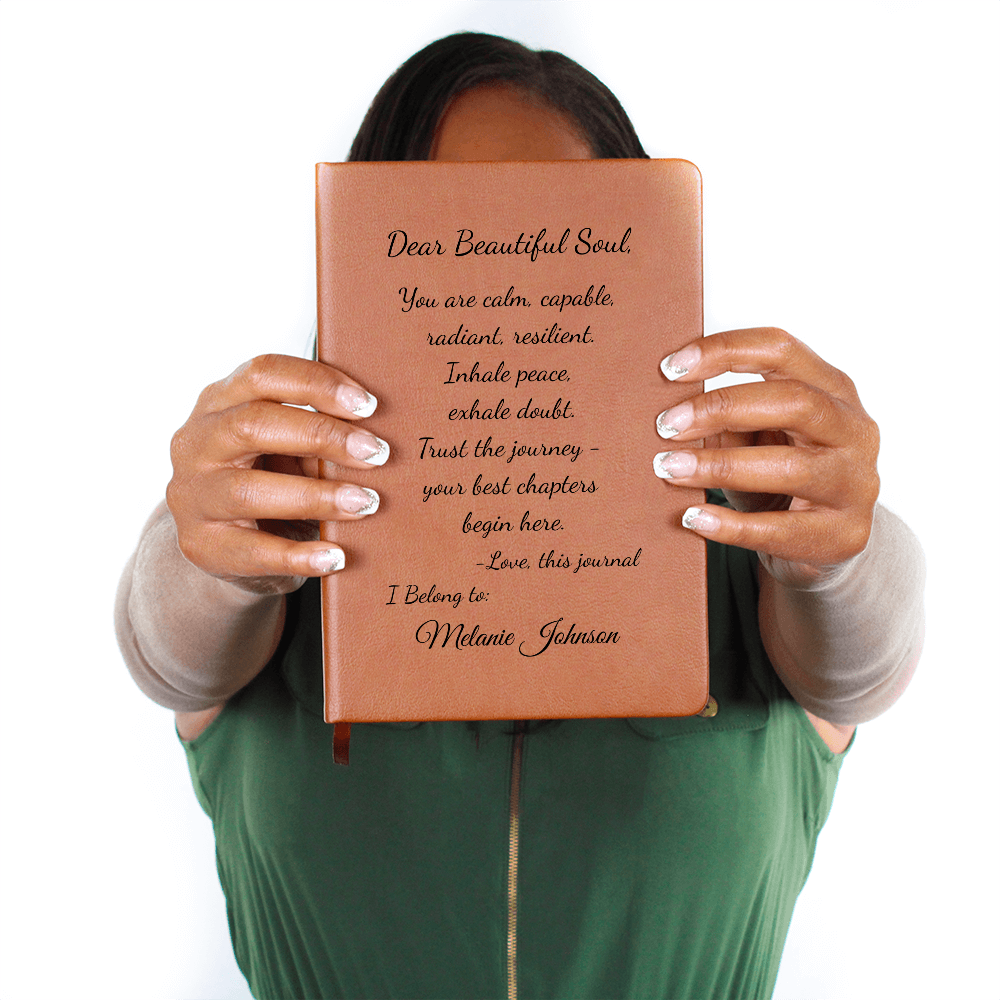 Dear Beautiful Soul,
You are calm, capable,
radiant, resilient.
Inhale peace,
exhale doubt.
Trust the journey -
your best chapters
begin here.
-Love, this journal
I Belong to:
Melanie Johnson